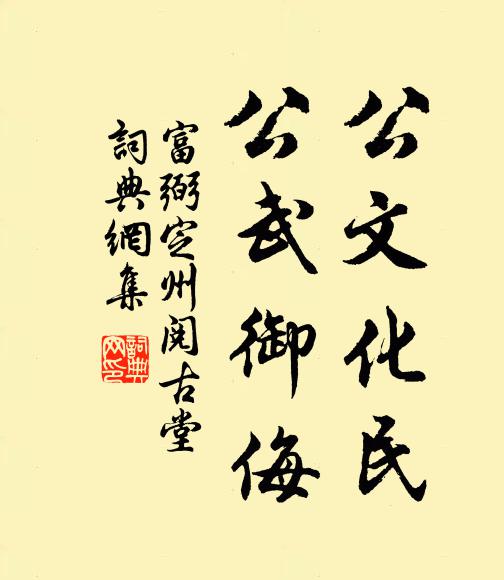 公文化民
公武御侮
富弼定州阅古堂
詞典網集
詞典網印